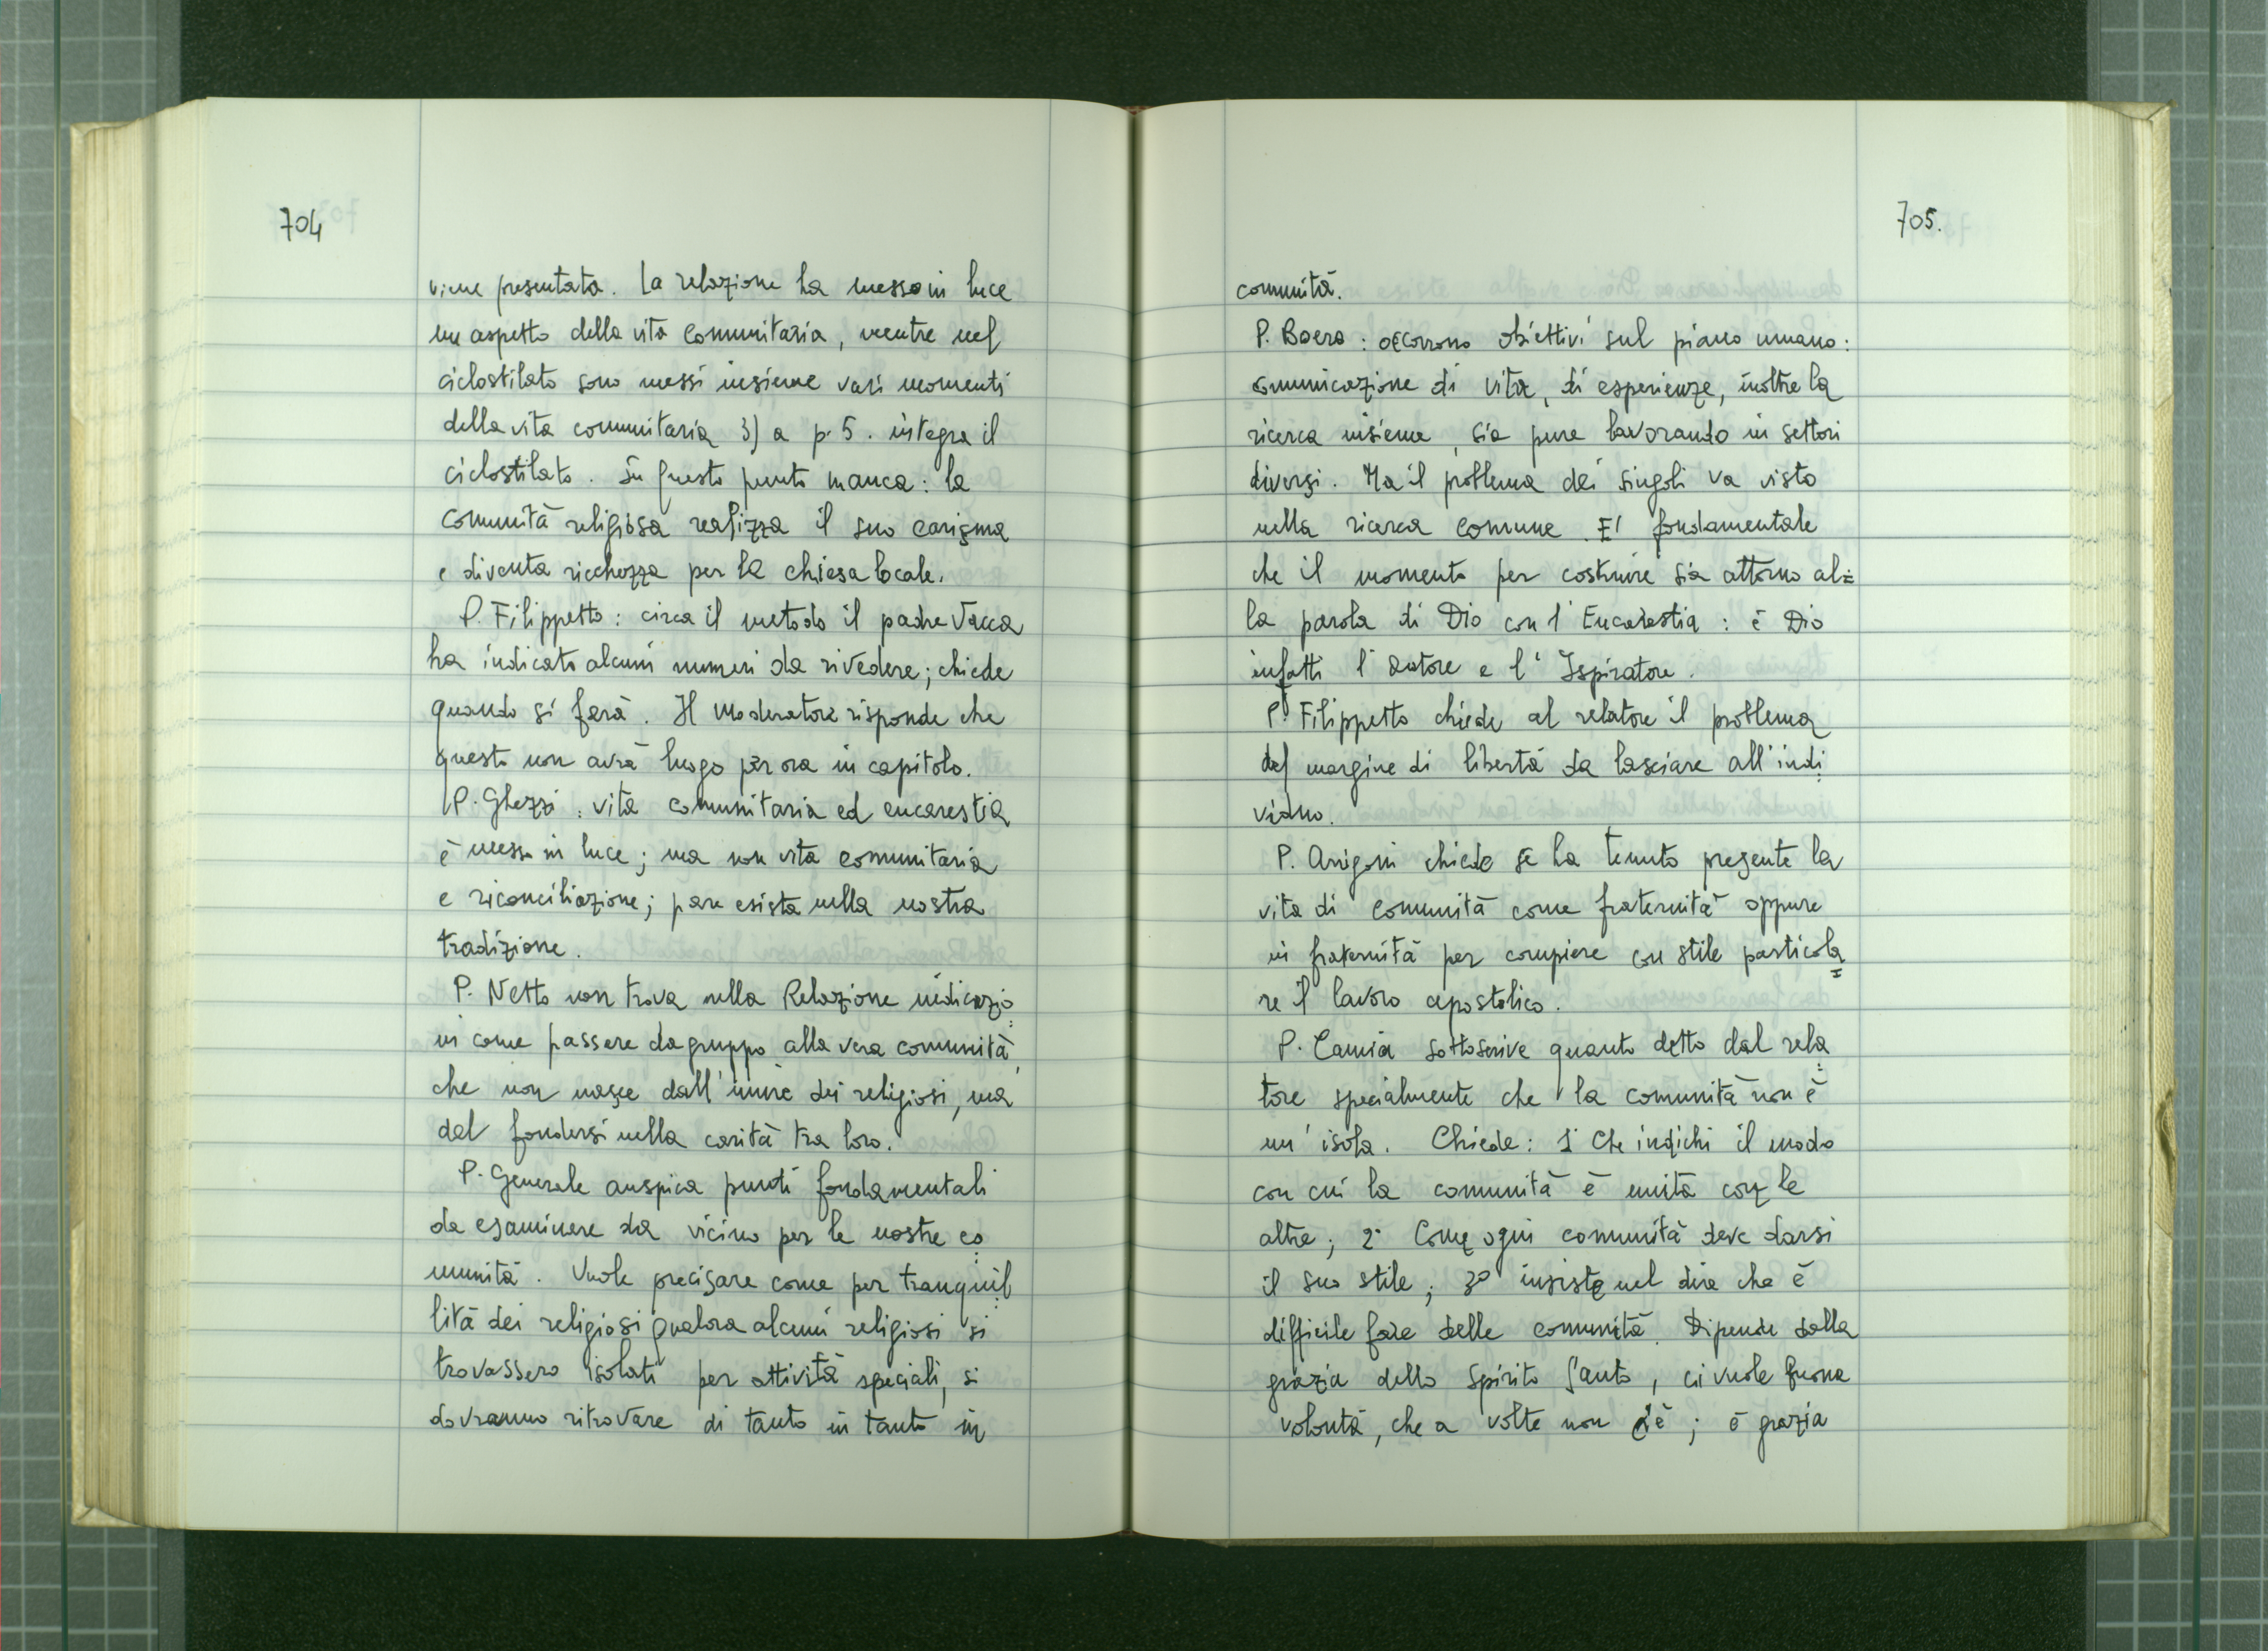 704
viene presentata. La relazione ha messo in luce
un aspetto della vita comunitaria, mentre nel
ciclostilato sono messi insieme vari momenti
della vita comunitaria 3) a p. 5. integra il
ciclostilato. Su questo punto manca: la
comunità religiosa realizza il suo carisma
e diventa ricchezza per la chiesa locale.
P. Filippetto: circa il metodo il padre Vacca
ha indicato alcuni numeri da rivedere; chiede
quando si farà. Il Moderatore risponde che
questo non avrà luogo per ora in capitolo.
P. Ghezzi: vita comunitaria ed eucarestia
è messa in luce; ma non vita comunitaria
e riconciliazione; pare esista nella nostra
tradizione.
P. Netto non trova nella Relazione indicazio
ni come passare da gruppo alla vera comunità,
che non nasce dall'unire dei religiosi, ma
dal fondersi nella carità tra loro.
P. Generale auspica punti fondamentali
da esaminare da vicino per le nostre co
munità. Vuole precisare come per tranquil
lità dei religiosi qualora alcuni religiosi si
trovassero isolati per attività speciali, si
dovranno ritrovare di tanto in tanto in
705.
comunità.
P. Boero: occorrono obiettivi sul piano umano:
comunicazione di vita, di esperienze, inoltre la
ricerca insieme, sia pure lavorando in settori
diversi. Ma il problema dei singoli va visto
nella ricerca comune. E' fondamentale
che il momento per costruire sia attorno al=
la parola di Dio con l'Eucarestia: è Dio
infatti l'autore e l'Ispiratore.
P. Filippetto chiede al relatore il problema
del margine di libertà da lasciare all'indi
viduo.
P. Arrigoni chiede se ha tenuto presente la
vita di comunità come fraternità oppure
in fraternità per compiere con stile particola
re il lavoro apostolico.
P. Camia sottoscrive quanto detto dal rela
tore specialmente che la comunità non è
un'isola. Chiede: 1° Che indichi il modo
con cui la comunità è unità con le
altre; 2° Come ogni comunità deve darsi
il suo stile; 3° insiste nel dire che è
difficile fare delle comunità. Dipende dalla
grazia dello Spirito Santo, ci vuole buona
volontà, che a volte non c'è; è grazia